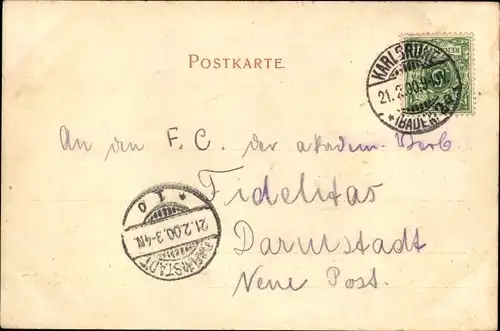 POSTKARTE.
KARLSRUHE
21.2.00.
(BADEN)
An den F. C. der akadem. Verb.
Fidelitas
Darmstadt
Neue Post.
DARMSTADT
21.2.00.3-4N.
* 1 o